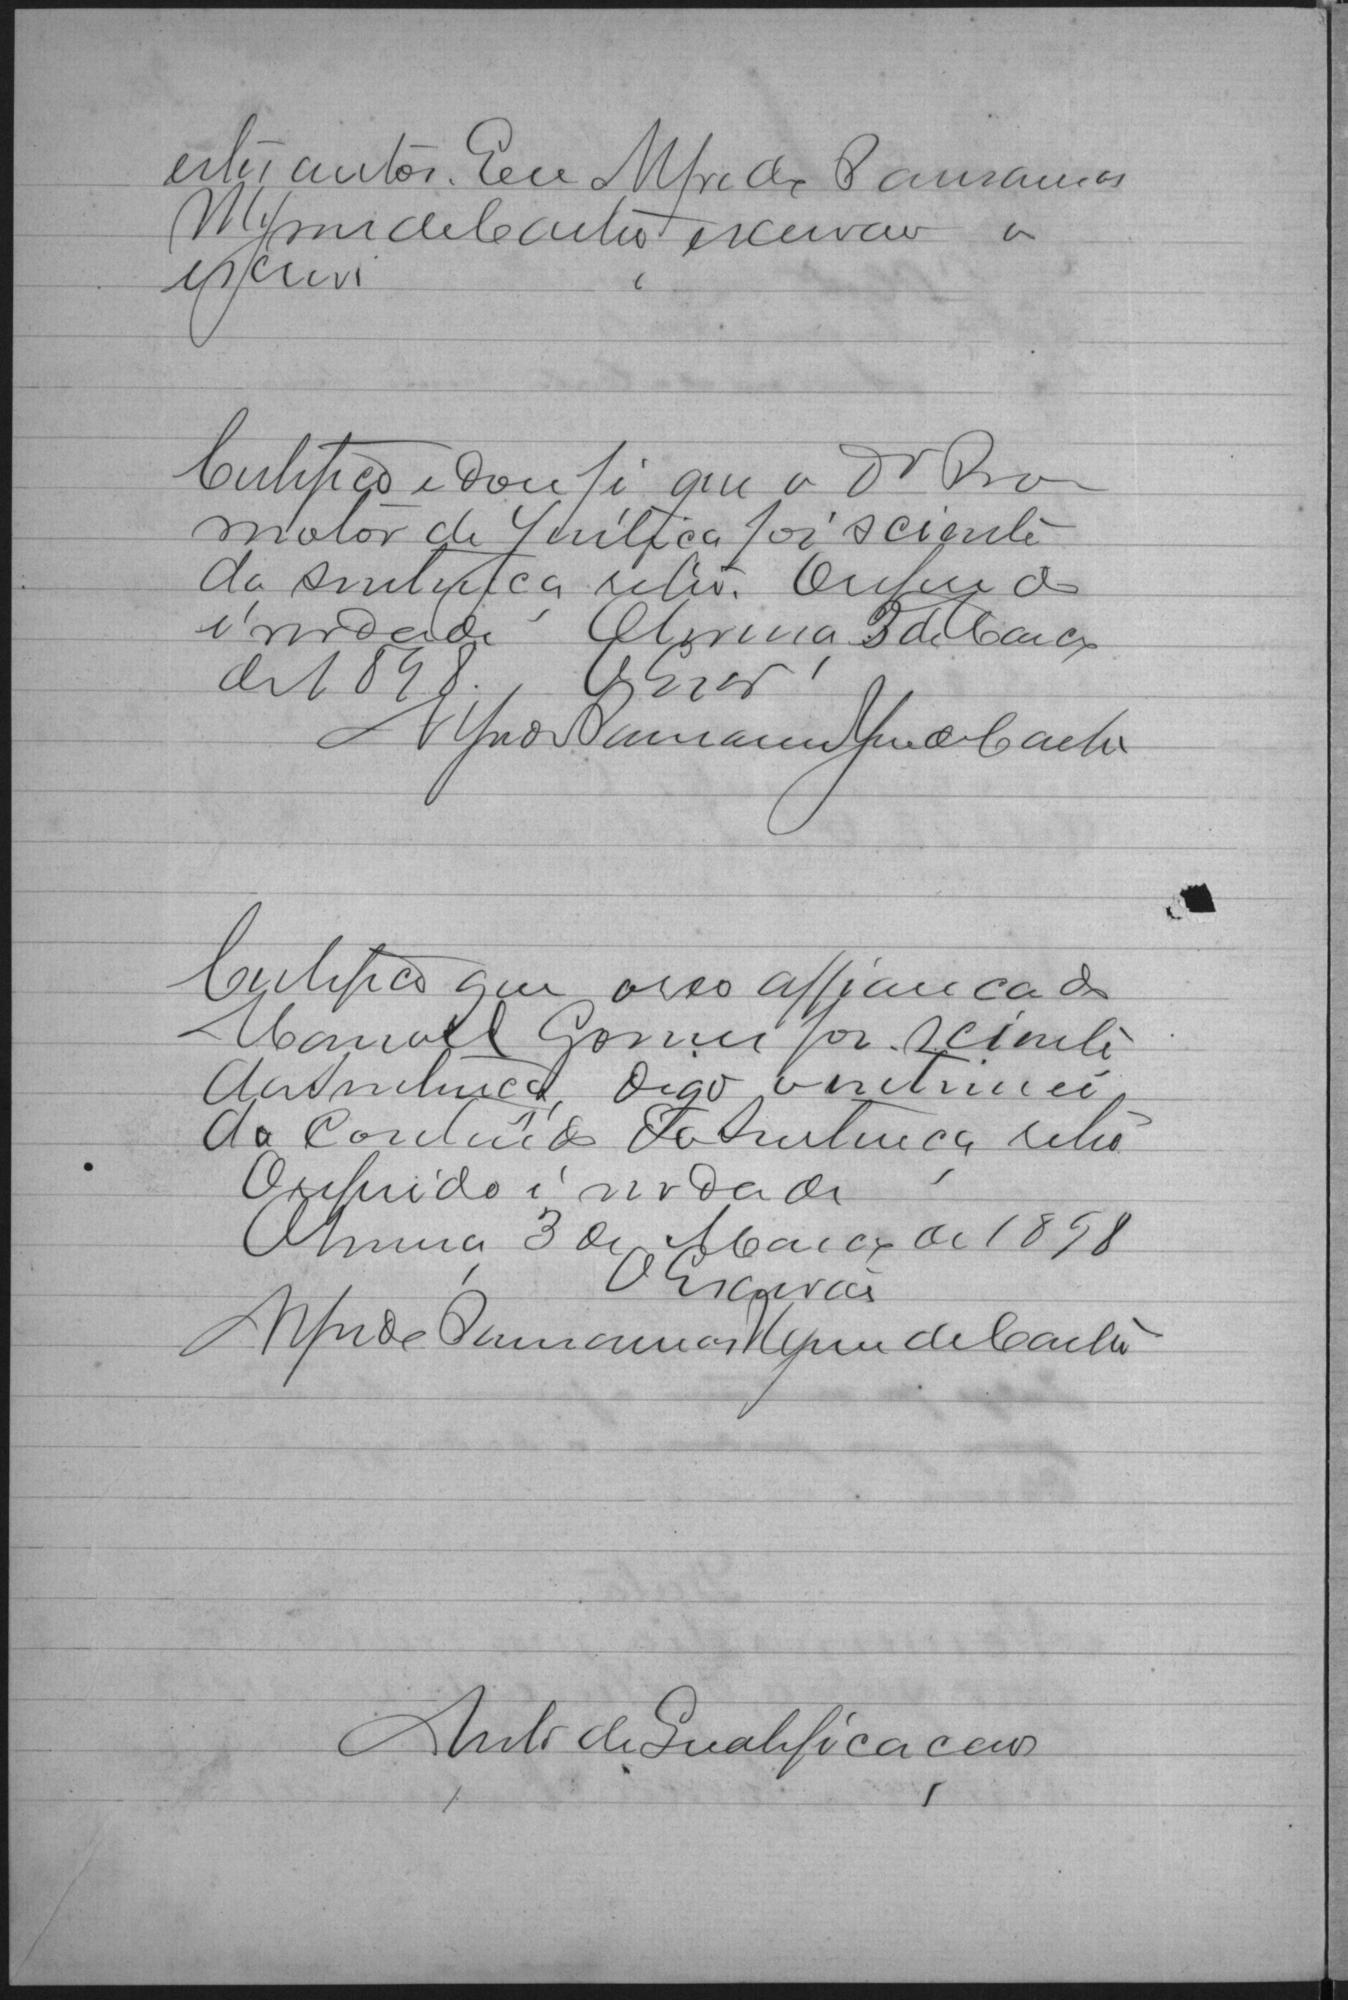 estes autos. Eu Alfredo
de Castro escrivão o
escrevi
Certifico e dou fé que o Dr Pro
motor de Justiça foi sciente
da sentença retro. O referido
é verdade 3 de Março
de 1898. O Escr
Alfredo de Castro
Certifico que o reo affiançado
Manoel Gomes foi sciente
da sentença, digo o intimei
do conteúdo da sentença retro
O referido é verdade
3 de Março de 1898
O Escrivão
Alfredo de Castro
Auto de Qualificação